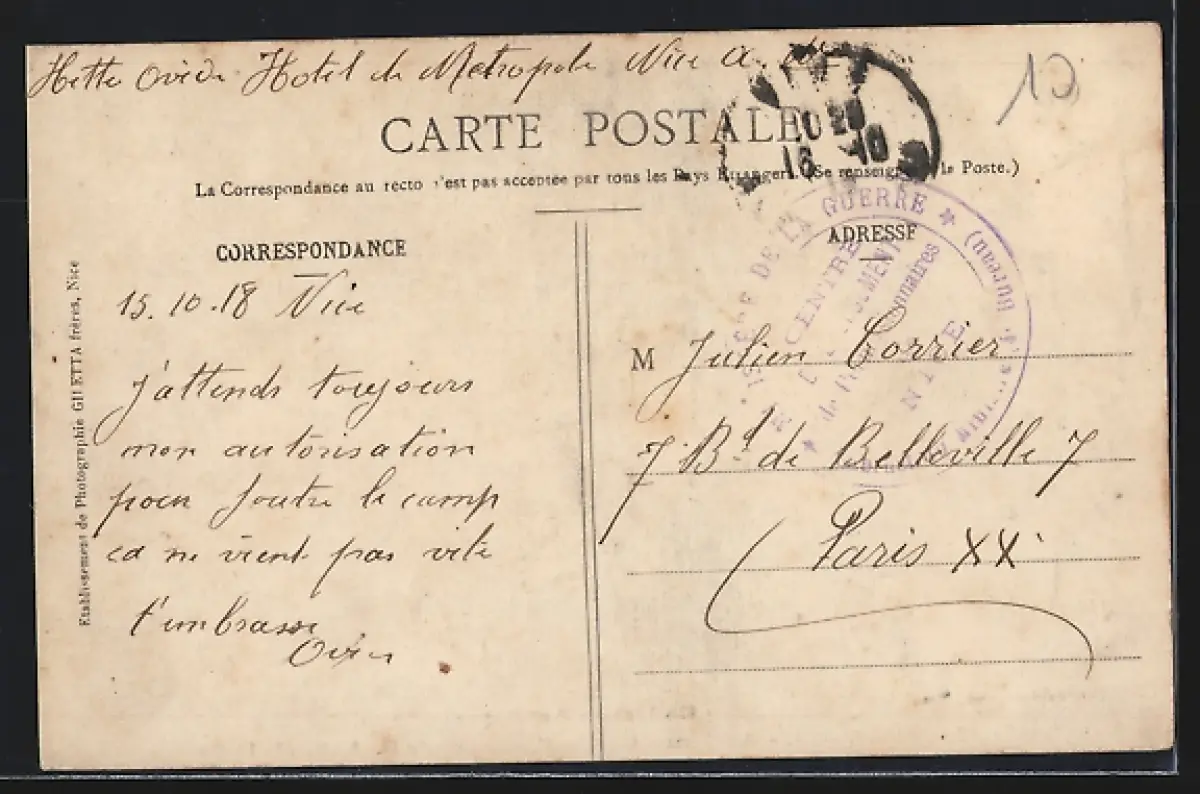 Hotel de Metropole Nice A. M.
12
CARTE POSTALE
La Correspondance au recto n'est pas acceptée par tous les Pays Etrangers. (Se renseigner à la Poste.)
16 - 10
CORRESPONDANCE
ADRESSE
GUERRE
CENTRE
NICE
15.10.18 Nice
j'attends toujours
mon autorisation
pour foutre le camp
ça ne vient pas vite
t'embrasse
Ovide
M Julien Corrier
7 Bd de Belleville 7
Paris XX
Etablissement de Photographie GILETTA frères, Nice